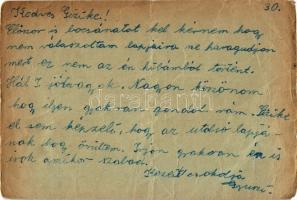 30.
Kedves Gizike!
Először is bocsánatot kel kérnem hogy
nem válaszoltam lapjaira ne haragudjon
mert ez nem az én hibámból történt.
Hál I. jól vagyok. Nagyon köszönöm
hogy ilyen gyakran gondol rám. Gizike
el sem képzeli, hogy az utolsó lapjá-
nak hogy örültem. Irjon gyakran én is
irok amikor szabad.
Kezeit csokolja
Gyuszi.